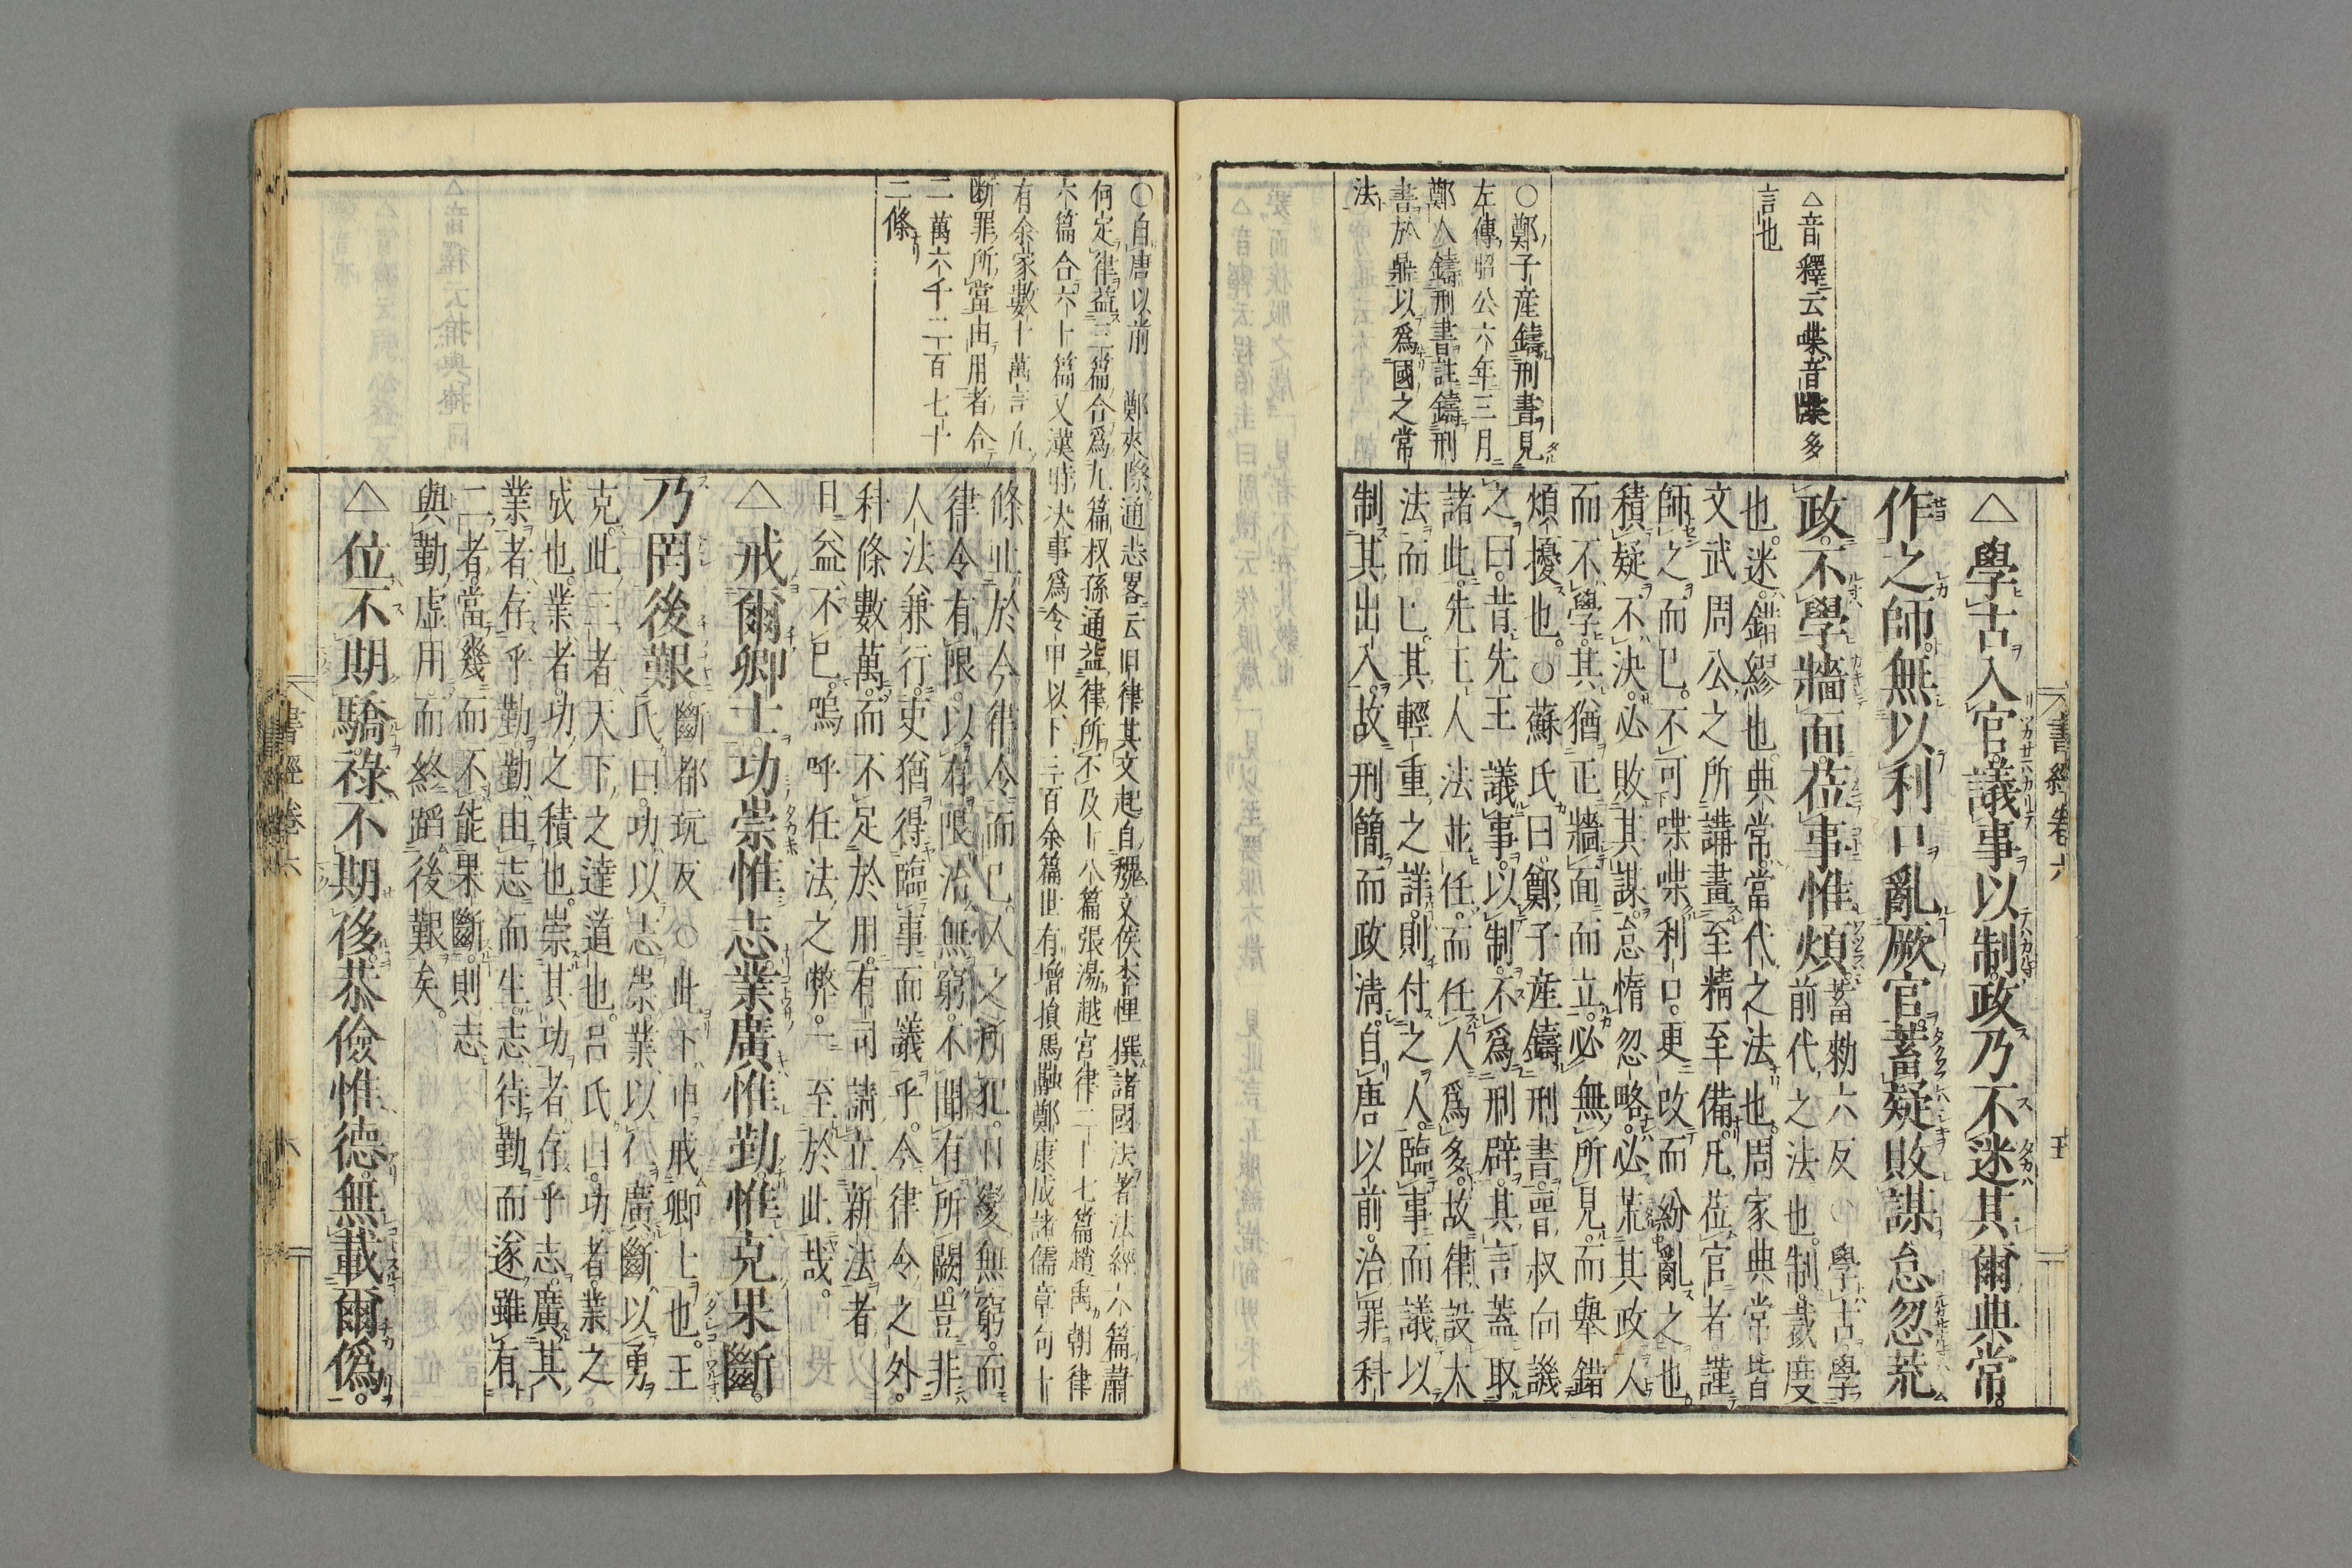 △學古入官議事以制政乃不迷其爾典常
作之師無以利口亂厥官蓄疑敗謀怠忽荒
政不學牆面莅事惟煩蓄勑六反○學古學
前代之法也制裁度
也迷錯繆也典常當代之法也周家典常皆
文武周公之所講畫至精至備凡莅官者謹
師之而已不可喋喋利口更改而紛亂之也
積疑不決必敗其謀怠惰忽略必荒其政人
而不學其猶正牆面而立必無所見而舉錯
煩擾也○蘇氏曰鄭子産鑄刑書晉叔向譏
之曰昔先王議事以制不爲刑辟其言蓋取
諸此先王人法並任而任人爲多故律設大
法而已其輕重之詳則付之人臨事而議以
制其出入故刑簡而政清自唐以前治罪科
△音釋云喋音牒多
言也
○鄭子産鑄刑書見
左傳昭公六年三月
鄭人鑄刑書註鑄刑
書於鼎以爲國之常
法
書經卷六
○自唐以前 鄭夾漈通志畧云旧律其文起自魏文侯李悝撰諸國法著法經六篇蕭
何定律益三篇合爲九篇叔孫通益律所不及十八篇張湯越宮律二十七篇趙禹朝律
六篇合六十篇又漢時决事爲令甲以下三百余篇世有增損馬融鄭康成諸儒章句十
有余家數十萬言凡
断罪所當由用者合
二萬六千二百七十
二條
條止於今律令而已人之所犯日變無窮而
律令有限以有限治無窮不聞有所闕豈非
人法兼行吏猶得臨事而議乎今律令之外
科條數萬而不足於用有司請立新法者
日益不已嗚呼任法之弊一至於此哉
△戒爾卿士功崇惟志業廣惟勤惟克果斷
乃罔後艱斷都玩反○此下申戒卿士也王
氏曰功以志崇業以仁廣斷以勇
克此三者天下之達道也呂氏曰功者業之
成也業者功之積也崇其功者存乎志廣其
業者存乎勤勤由志而生志待勤而遂雖有
二者當幾而不能果斷則志
與勤虛用而終蹈後艱矣
△位不期驕祿不期侈恭儉惟德無載爾僞
書經卷六